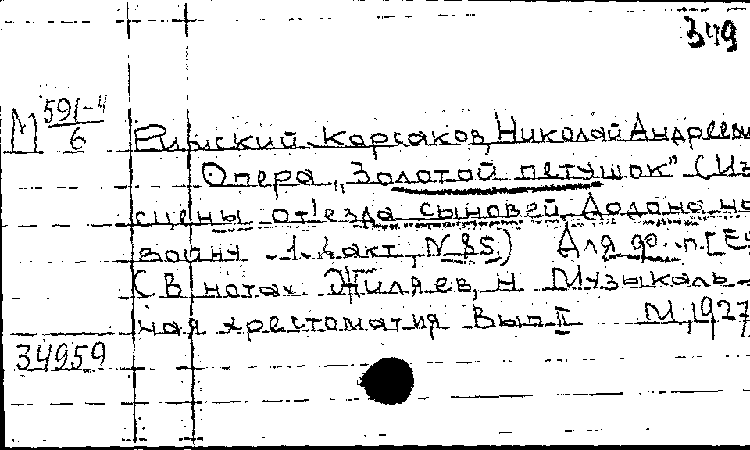 349
М 591-4
6
Римский-Корсаков, Николай Андрееви
Опера „Золотой петушок" (Из
сцены от'езда сыновей Додона на
войну 1. акт, N 85) Для фо-п. [Ек
(В нотах Жиляев, Н Музыкаль-
ная хрестоматия Вып II М, 1927
34959